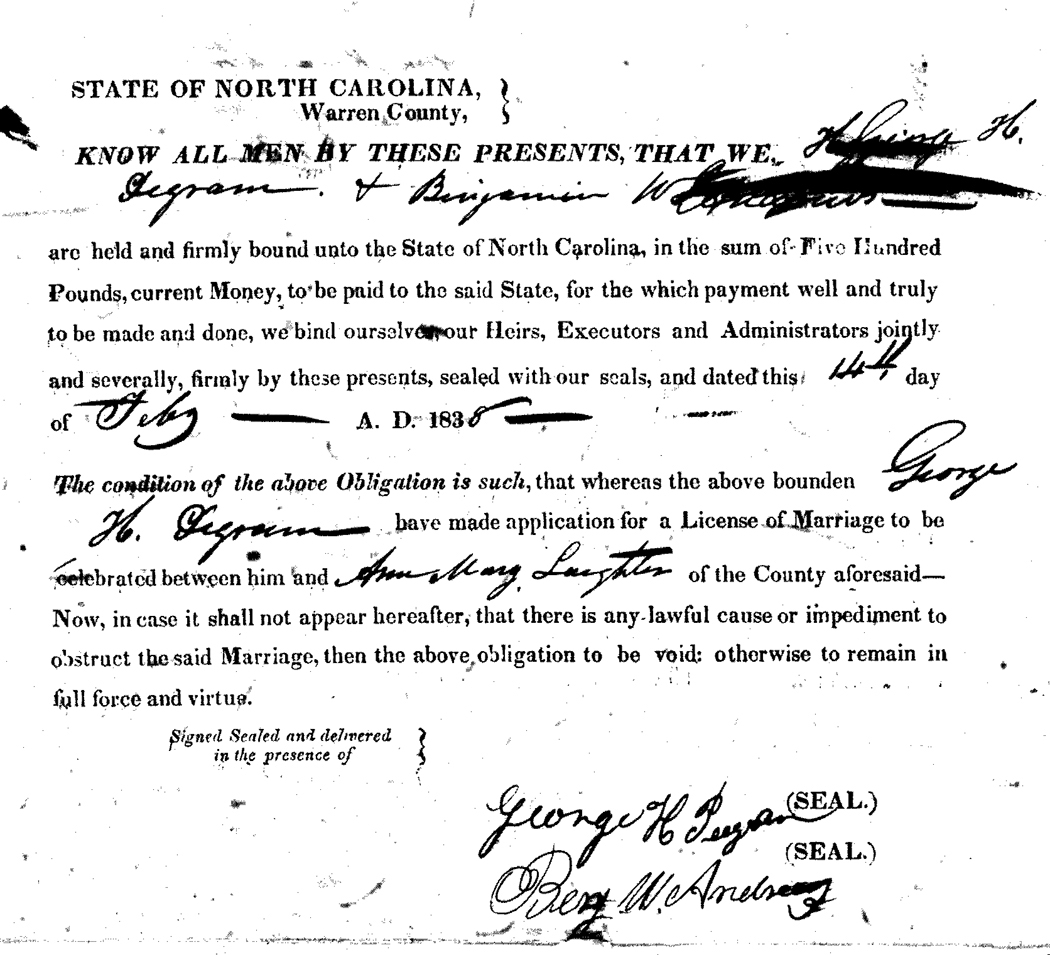 STATE OF NORTH CAROLINA,
Warren County,
KNOW ALL MEN BY THESE PRESENTS, THAT WE, H George H.
Pegram & Benjamin W
are held and firmly bound unto the State of North Carolina, in the sum of Five Hundred
Pounds, current Money, to be paid to the said State, for the which payment well and truly
to be made and done, we bind ourselves, our Heirs, Executors and Administrators jointly
and severally, firmly by these presents, sealed with our seals, and dated this 14th day
of Feby A. D. 1838
The condition of the above Obligation is such, that whereas the above bounden George
H. Pegram have made application for a License of Marriage to be
celebrated between him and Ann Mary Laughter of the County aforesaid—
Now, in case it shall not appear hereafter, that there is any lawful cause or impediment to
obstruct the said Marriage, then the above obligation to be void: otherwise to remain in
full force and virtue.
Signed Sealed and delivered
in the presence of
George H Peegram (SEAL.)
(SEAL.)
Benj W. Andrews